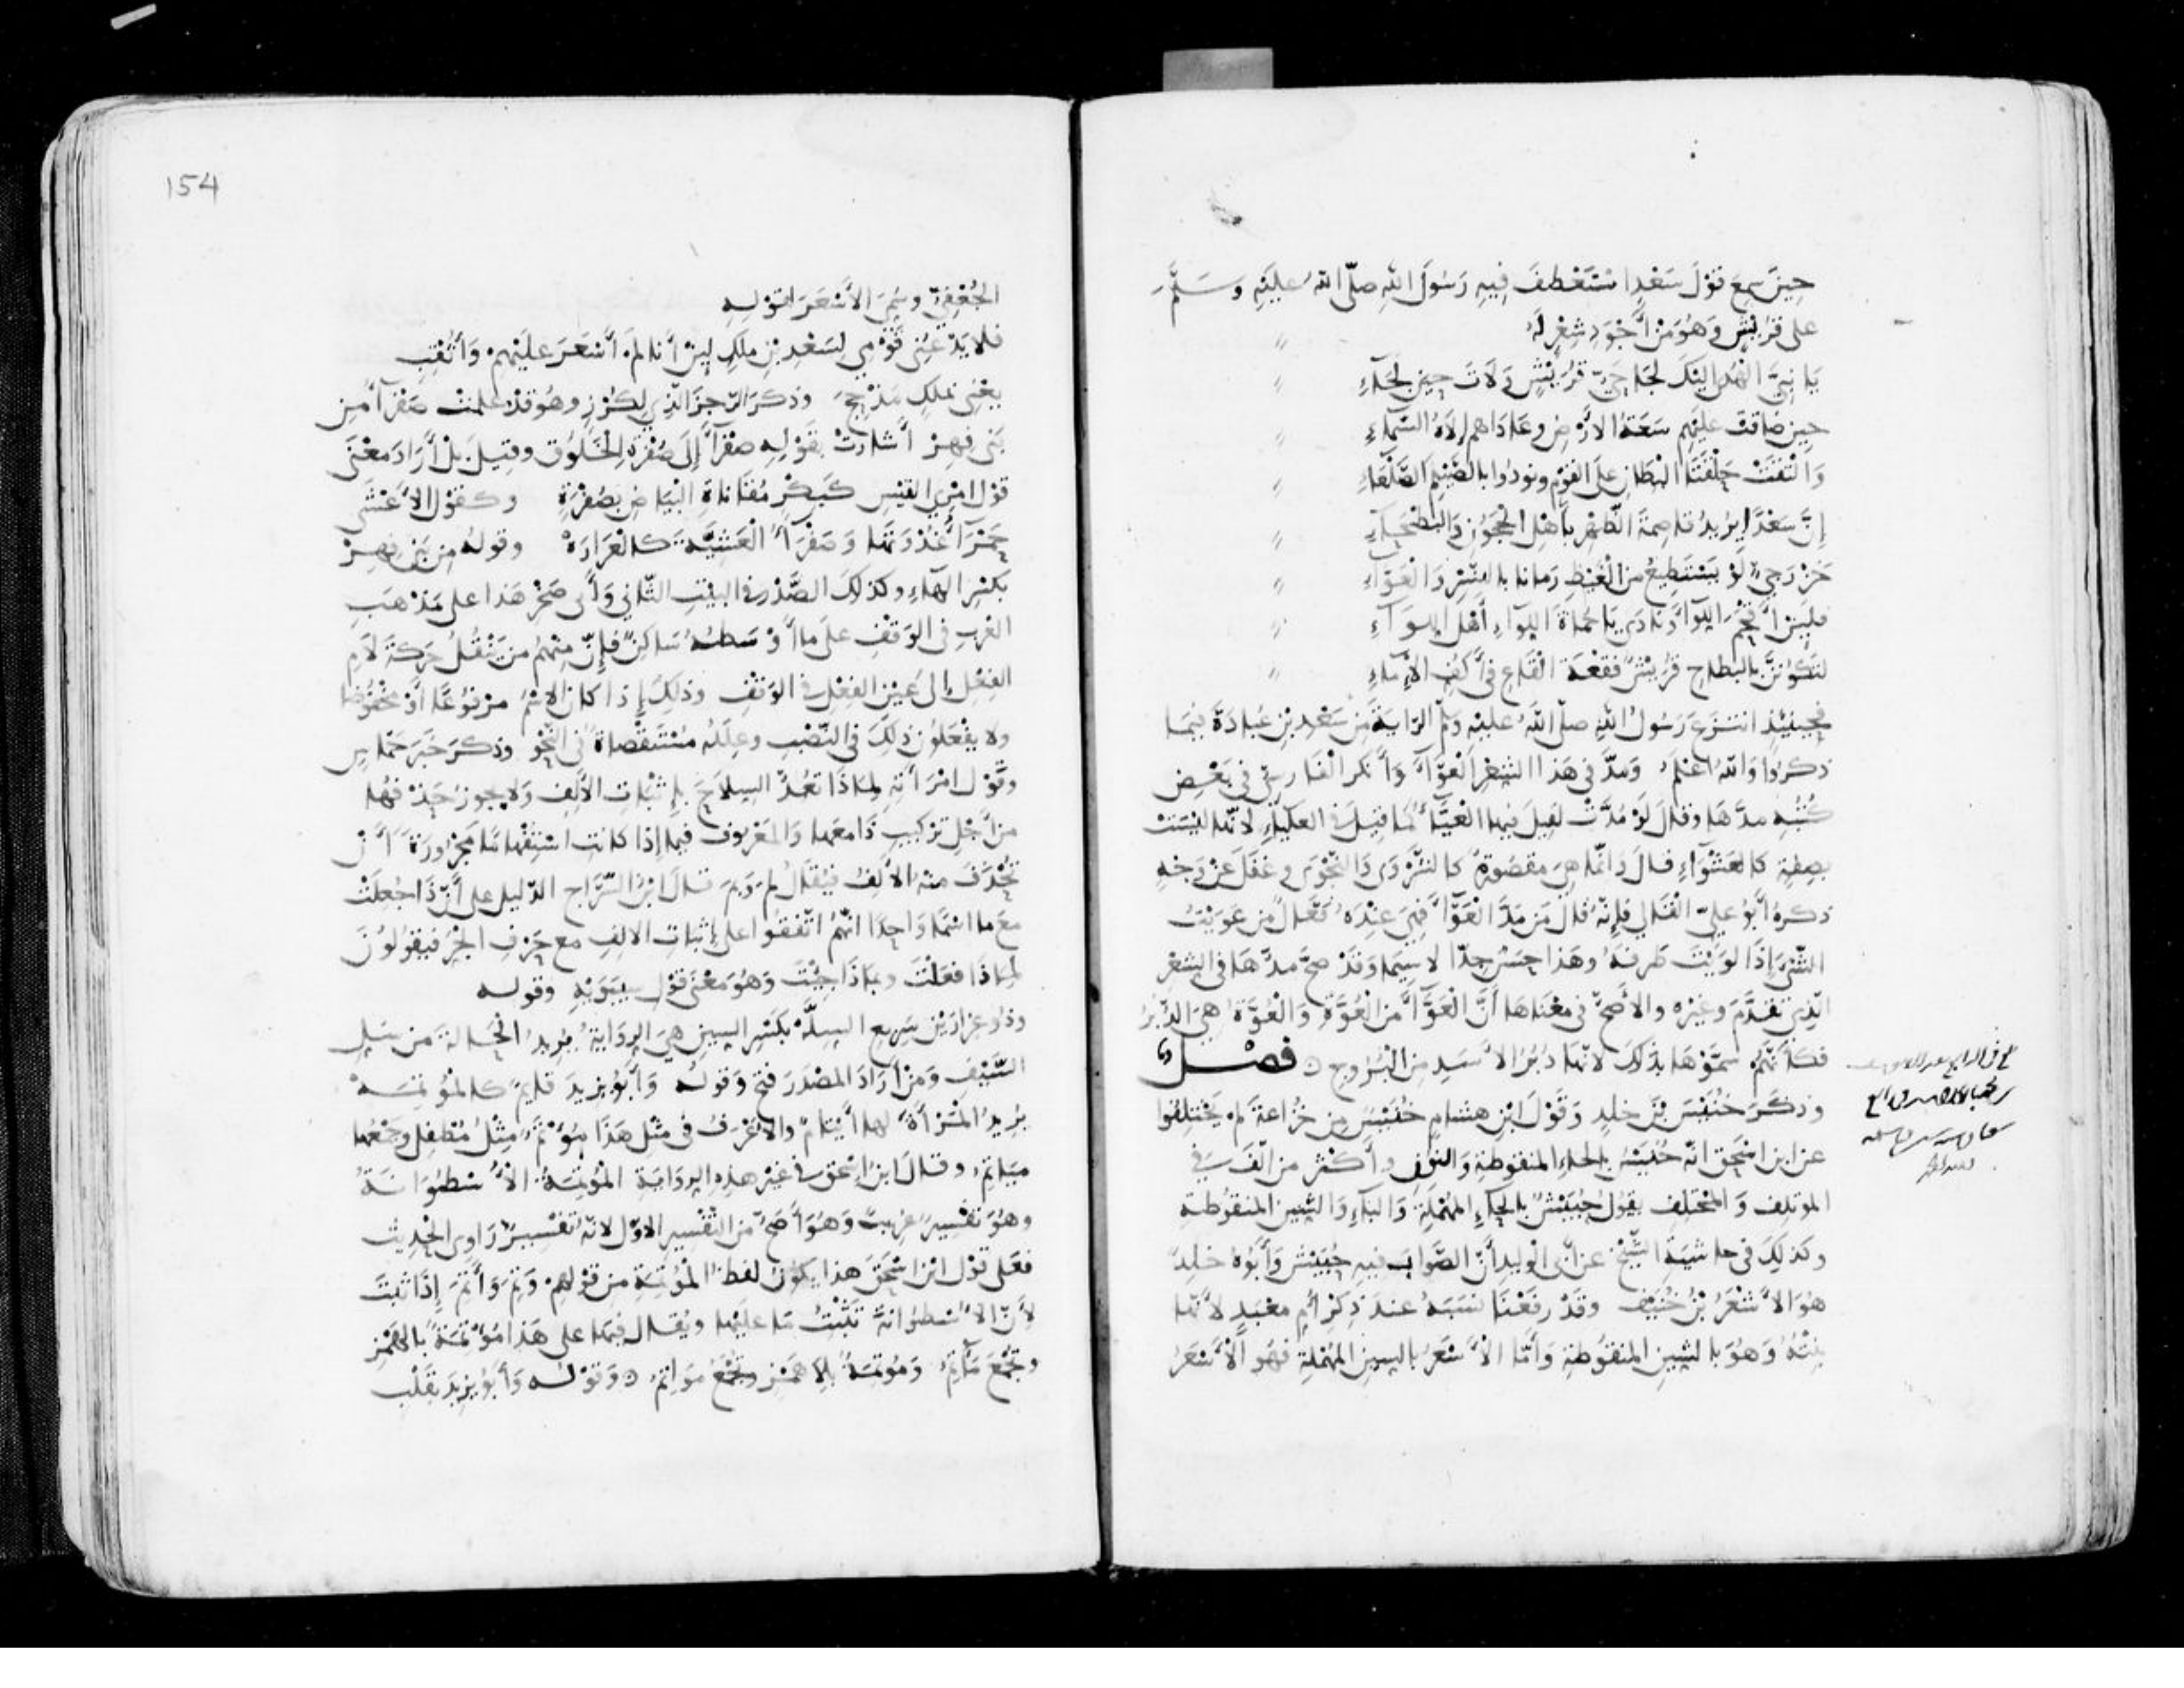 حِينَ سَمِعَ قَوْلَ سَعْدٍ اسْتَعْطَفَ فِيهِ رَسُولَ اللهِ صلّى اللهُ عليْهِ وَسَلَّمَ
على قُرَيْشٍ وَهُوَ مِنْ أَجْوَدِ شِعْرٍ لَهُ
يَا نَبِيَّ الْهُدَى إِلَيْكَ لَجَا حَيُّ قُرَيْشٍ وَلَاتَ حِينَ لَجَاءِ
حِينَ ضَاقَتْ عَلَيْهِم سَعَةُ الأَرْضِ وعَادَاهم إِلَهُ السَّمَاءِ
وَالْتَقَتْ حَلْقَتَا الْبِطَانِ عَلَى الْقَوْمِ ونودُوا بالصَّيْلَمِ الصَّلْعَاءِ
إِنَّ سَعْدًا يُرِيدُ قاصِمَةَ الظَّهْرِ بِأَهْلِ الْحَجُونِ وَالْبَطْحَاءِ
خَزْرَجِيٌّ لَوْ يَسْتَطِيعُ مِنَ الْغَيْظِ رَمانا بالنَّسْرِ وَالْعَوَّاءِ
فَلَئِنْ أَقْحَمَ اللِّوَاءَ وَنَادَى يَا حُمَاةَ اللِّوَاءِ أَهْلَ اللِّوَآءِ
لَتَكُونَنَّ بِالْبِطَاحِ قُرَيْشٌ فَقْعَةَ الْقَاعِ فِي أَكُفِّ الْإِمَاءِ
فحِينَئِذٍ انْتَزَعَ رَسُولُ اللهِ صلّى اللهُ عليْهِ وَسلم الرَّايَةَ مِنْ سَعْدِ بْنِ عُبَادَةَ فِيمَا
ذكرُوا وَاللهُ أَعْلَمُ وَمَدَّ فِي هَذَا الشِّعْرِ الْعَوَّآءَ وَأَنْكَرَ الْفَارِسِيُّ فِي بَعْضِ
كُتُبِهِ مدَّهَا وقَالَ لَوْ مُدَّتْ لَقِيلَ فِيهَا الْعَيَّاءُ كَمَا قِيلَ فِي الْعَلْيَاءِ لأنّهَا لَيْسَتْ
بِصِفَةٍ كَالْعَشْوَاءِ قالَ وَإِنَّمَا هِيَ مَقْصُورَةٌ كَالشَّرْوَى وَالنَّجْوَى وغَفَلَ عَنْ وَجْهٍ
ذكرهُ أَبُو عَلِيٍّ الْقَالِي فإِنَّهُ قَالَ مَنْ مَدَّ الْعَوَّآءَ فَهِيَ عِنْدَهُ فَعَّالٌ مِنْ عَوَيْتُ
الشَّيْءَ إِذَا لَوَيْتَ طَرَفَهُ وهَذَا حَسَنٌ جِدًّا لاسِيَّمَا وَقَدْ صَحَّ مدُّهَا في الشِّعْرِ
الَّذِي تقَدَّمَ وغيْرِهِ والأَصَحُّ في مَعْنَاهَا أَنَّ الْعَوَّآءَ مِنَ الْعَوَّةِ وَالْعَوَّةُ هِيَ الدُّبُرُ
فكأَنَّهُمْ سَمَّوْهَا بذَلِكَ لأنَّهَا دُبُرُ الأَسَدِ مِنَ الْبُرُوجِ ٥ فصْــل
وذكَرَ خُنَيْسَ بْنَ خلِدٍ وَقَوْلَ ابْنِ هشامٍ خُنَيْسٌ مِنْ خُزَاعَةَ لَمْ يَخْتَلِفُوا
عن ابن إسْحَقَ أنّهُ خُنَيْسٌ بالخاءِ المنقوطةِ وَالنونِ وأَكْثرُ من أَلَّفَ في
الموتلِفِ وَالمخْتَلِفِ يقولُ حُبَيْشٌ بالحاءِ المُهْمَلَةِ وَالبَاءِ وَالشِّينِ المنْقُوطةِ
وكَذلِكَ في حاشيَةِ الشَّيْخِ عن أَبِي الْوليدِ أَنَّ الصَّوابَ فيهِ حُبَيْشٌ وَأَبُوهُ خلِدٌ
هُوَ الأَشْعَرُ بْنُ خُنَيْفٍ وقَدْ رفَعْنَا نَسَبَهُ عندَ ذِكْرِ أُمِّ مَعْبَدٍ لأنَّهَا
بِنْتُهُ وَهُوَ بالشِّينِ المنقُوطةِ وَأَمَّا الأَسْعَرُ بالسِّينِ المهْمَلةِ فهُوَ الأَسْعَرُ
154
الجُعْفِيُّ وسُمِّيَ الأَسْعَرَ لقَوْلِهِ
فلا يَدْعُنِي قَوْمِي لِسَعْدِ بْنِ مَلِكٍ لَئِنْ أَنا لَمْ أَسْعَرْ عَلَيْهِمْ وَأُثْقِبِ
يعْنِي بمَلِكٍ مَذْحِجَ وذكرَ الرَّجَزَ الَّذِي لِكُرْزٍ وهُوَ قَدْ علمتْ صَفْرَآءُ مِنْ
بَنِي فِهِرْ أَشَارَتْ بِقَوْلِهِ صَفْرَآءُ إِلَى صُفْرَةِ الْخَلُوقِ وقيلَ بلْ أَرَادَ مَعْنَى
قَوْلِ امْرِئِ القَيْسِ كَبِكْرِ مُقَانَاةِ الْبَيَاضِ بِصُفْرَةٍ وكقَوْلِ الأَعْشَى
حَمْرَآءُ غُدْوَتَهَا وَصَفْرَآءُ الْعَشِيَّةِ كَالْعَرَارَهْ وقولهُ مِن بَنِي فِهِرْ
بكَسْرِ الهَاءِ وكذلِكَ الصَّدْرُ في البيْتِ الثّاني وَأَبى صَخْر هَذا على مَذْهَبِ
العَرَبِ في الوَقْفِ عَلَى ما أَوْسَطُهُ سَاكِنٌ فإِنَّ مِنْهُمْ مَنْ يَنْقُلُ حَرَكَةَ لَامِ
الفِعْلِ إلى عَيْنِ الفِعْلِ في الوَقْفِ وذلِكَ إِذا كانَ الاسْمُ مَرْفُوعًا أَوْ مَخْفُوضًا
ولا يَفْعَلُونَ ذلِكَ في النَّصْبِ وعِلَلُهُ مُسْتَقْصَاةٌ في النَّحْوِ وذكرَ خَبَرَ حِمَاسٍ
وقَوْلَ امْرَأَتِهِ لِمَاذَا تُعِدُّ السِّلَاحَ بإِثْبَاتِ الأَلِفِ وَلا يجوزُ حَذْفُهَا
من أَجْلِ تَرْكِيبِ ذَا معَهَا وَالمَعْرُوفُ في مَا إذا كانت اسْتِفْهَامًا مَجْرُورَةً أَنْ
تُحْذَفَ منها الأَلِفُ فيُقَالُ لِمَ وَبِمَ قالَ ابْنُ السَّرَّاجِ الدَّليلُ على أَنَّ ذَا جُعِلَتْ
مَعَ ما اسْمًا وَاحِدًا أَنَّهُمُ اتَّفَقُوا على إثباتِ الأَلِفِ مع حَرْفِ الجَرِّ فيَقُولُونَ
لِمَاذَا فَعَلْتَ وبِمَاذَا جِئْتَ وَهُوَ مَعْنَى قَوْلِ سِيبَوَيْهِ وقوله
وذُو غِرَارَيْنِ سَرِيعُ السِّلَّهْ بكسْرِ السِّينِ هِيَ الرِّوَايَةُ يُرِيدُ الحَالةَ مِن سَلِّ
السَّيْفِ وَمَنْ أَرَادَ المصْدَرَ فتحَ وَقولُهُ وَأَبُو يَزِيدَ قَايِمٌ كالمُؤْتِمَهْ
يُرِيدُ المَرْأَةَ لهَا أَيْتَامٌ والأَعْرَفُ في مثْلِ هَذَا مُؤْتِمٌ مِثْلُ مُطْفِلٍ وجَمْعُهَا
مَيَاتِمُ وقالَ ابنُ إسْحَقَ في غيْرِ هَذِهِ الرِّوَايَةِ المُؤْتِمَةُ الأُسْطُوَانَةُ
وهُوَ تَفْسِيرٌ غَرِيبٌ وَهُوَ أَصَحُّ مِنَ التَّفْسِيرِ الأَوَّلِ لأنَّهُ تَفْسِيرُ رَاوِي الحَدِيثِ
فعَلى قَوْلِ ابْنِ إسْحَقَ هَذا يكُونُ لَفْظُ المُؤْتِمَةِ مِن قَوْلِهِمْ وَتَمَ وَأَتَمَ إِذَا ثَبَتَ
لأَنَّ الأُسْطُوَانَةَ تُثَبِّتُ مَا عَلَيْهَا ويُقَالُ فيهَا على هَذا مُؤْتِمَةٌ بالهَمْزِ
وتُجْمَعُ مَآتِمَ وَمُوتِمَةٌ بِلا هَمْزٍ وتُجْمَعُ مَوَاتِمَ ٥ وَقَوْلُه وَأَبُو يَزِيدَ بقَلْبِ